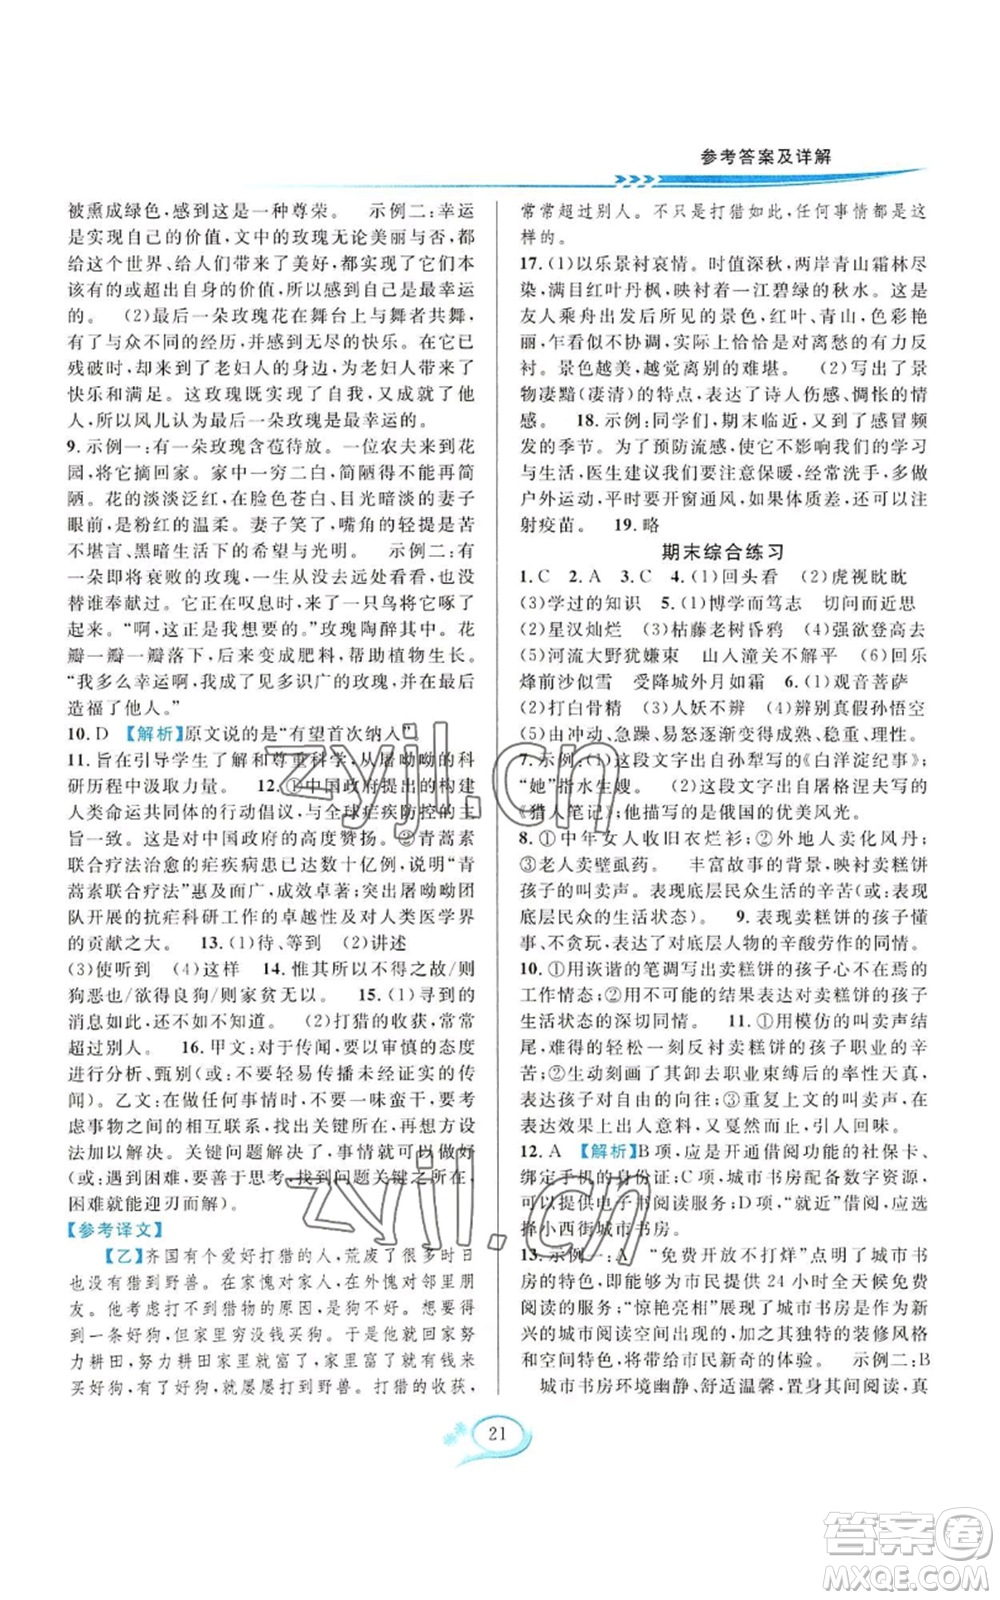 参考答案及详解
被熏成绿色，感到这是一种尊荣。　示例二：幸运
是实现自己的价值，文中的玫瑰无论美丽与否，都
给这个世界、给人们带来了美好，它们实现了它本
该有的或超出自身的价值，所以它们自己是最幸运
的。　(2)最后一朵玫瑰花在舞台上与舞者共舞，
有了与众不同的经历，并感到无尽的快乐。在它已
过期时，却来到了老妇人的身边，为老妇人带来了
快乐和满足。这玫瑰既实现了自我，又成就了他
人，所以风儿认为最后一朵玫瑰是最幸运的。
9. 示例一：有一朵玫瑰含苞待放。一位农夫来到花
园，将它摘回家。家中一穷二白，简陋得不能再简
陋。花的淡淡泛红，在脸色苍白、目光暗淡的妻子
眼前，是粉红的温柔。妻子笑了，嘴角的轻提是苦
不堪言、黑暗生活下的希望与光明。　示例二：有
一朵即将衰败的玫瑰，一直在远处看看，也不曾
替谁奉献过。它正在叹息时，来了一只鸟将它叼了
起来。“啊，这正是我想要的。”玫瑰陶醉其中。花
瓣一瓣一瓣落下，后来变成肥料，帮助植物生长。
“我多么幸运啊，我成了见多识广的玫瑰，并真的
造福了他人。”
10. D　【解析】原文说的是“有望首次纳入”。
11. 旨在引导学生了解和尊重科学，从屠呦呦的科
研历程中汲取力量。　12. ①中国政府提出的构建
人类命运共同体的行动倡议，与全球疟疾防控的主
旨一致。这是对中国政府的高度赞扬。②青蒿素
联合疗法治愈的疟疾病患已达数十亿例，说明“青
蒿素联合疗法”惠及面广，成效卓著；突出屠呦呦团
队开展的抗疟科研工作的卓越性及对人类医学界
的贡献之大。　13. (1)待、等到　(2)讲述
(3)使听到　(4)这样　14. 惟其所以不得之故/则
狗恶也/欲得良狗/则家贫无以。　15. (1)寻到的
消息如此，还不如不知道。　(2)打猎的收获，常常
超过别人。　16. 甲文：对于传闻，要以审慎的态度
进行分析、甄别(或：不要轻易传播未经证实的传
闻)。乙文：在做任何事情时，不要一味蛮干，要考
虑事物之间的相互联系，找出关键原因，再想方设
法加以解决。关键问题解决了，事情就可以做好了
(或：遇到困难，要善于思考，找出问题关键之所在，
困难就能迎刃而解)。
【参考译文】
【乙】齐国有个爱好打猎的人，荒废了很多时日
也没有猎到野兽。在家愧对家人，在外愧对邻里朋
友。他考虑打不到猎物的原因，是狗不好。想得
到一条好狗，但家里穷没钱买狗。于是他就回家努
力耕田，努力耕田家里就富了，家里富了就有钱来
买好狗，有了好狗，就屡屡打到野兽。打猎的收获，
常常超过别人。不只是打猎如此，任何事情都是这
样的。
17. (1)以乐景衬哀情。时值深秋，两岸青山霜林尽
染，满目红叶丹枫，映衬着一江碧绿的秋水。这是
友人乘舟出发后所见的景色，红叶、青山，应是美丽
的，乍看似不协调，实际上恰恰是对离愁的有力反
衬。景色越美，越觉离别的难堪。　(2)写出了景
物凄黯(凄清)的特点，表达了诗人伤感、惆怅的情
感。　18. 示例：同学们，期末临近，又到了感冒频
发的季节。为了预防流感，使它不影响我们的学习
与生活，医生建议我们要注意保暖，经常洗手，多做
户外运动，平时要开窗通风，如果体质差，还可以注
射疫苗。　19. 略
期末综合练习
1. C　2. A　3. C　4. (1)回头看　(2)虎视眈眈
(3)学过的知识　5. (1)博学而笃志　切问而近思
(2)星汉灿烂　(3)枯藤老树昏鸦　(4)强欲登高去
(5)河流大野犹嫌束　山入潼关不解平　(6)回乐
烽前沙似雪　受降城外月如霜　6. (1)观音菩萨
(2)打白骨精　(3)人妖不辨　(4)别有用心
(5)由冲动、急躁、易怒逐渐变得成熟、理性
7. 示例：(1)这段文字出自孙犁写的《白洋淀纪事》；
“她”指水生嫂。　(2)这段文字出自屠格涅夫写的
《猎人笔记》；他描写的是俄国的优美风光。
8. ①中年女人收旧衣烂衫；②外地人卖化风丹；
③老人卖壁虱药。　丰富故事的背景，映衬卖糕饼
孩子的叫卖声。表现底层民众生活的辛苦(或：表现
底层民众的生活状态)。　9. 表现卖糕饼的孩子懂
事、不贪玩，表达了对底层人物的辛酸劳作的同情。
10. ①用诙谐的笔调写出卖糕饼的孩子心不在焉的
工作情态；②用不可能的生活表达对卖糕饼的孩子
生活状态的深切同情。　11. ①用模仿的叫卖声结
尾，难得的轻松一刻反衬卖糕饼的孩子职业的辛
苦；②生动刻画了其卸去职业束缚后的率性天真，
表达孩子对自由的向往；③重复上文的叫卖声，在
表达效果上出人意料，又戛然而止，引人回味。
12. A　【解析】B项，应是开通借阅功能的社保卡、
绑定手机的身份证；C项，城市书房配备数字资源，
可以提供电子书阅读服务；D项，“就近”借阅，应选
择小西街城市书房。
13. 示例一：A　“免费开放不打烊”点明了城市书
房的特色，即能够对市民提供 24 小时全天候免费
阅读的服务；“惊艳亮相”展现了城市书房是作为新
兴的城市阅读空间出现的，加之其独特的装修风格
和空间特色，将带给市民新奇的体验。　示例二：B
城市书房环境幽静、舒适温馨，置身其间阅读，真
21
zyjl.cn
zyjl.cn
答案卷
MXQE.COM